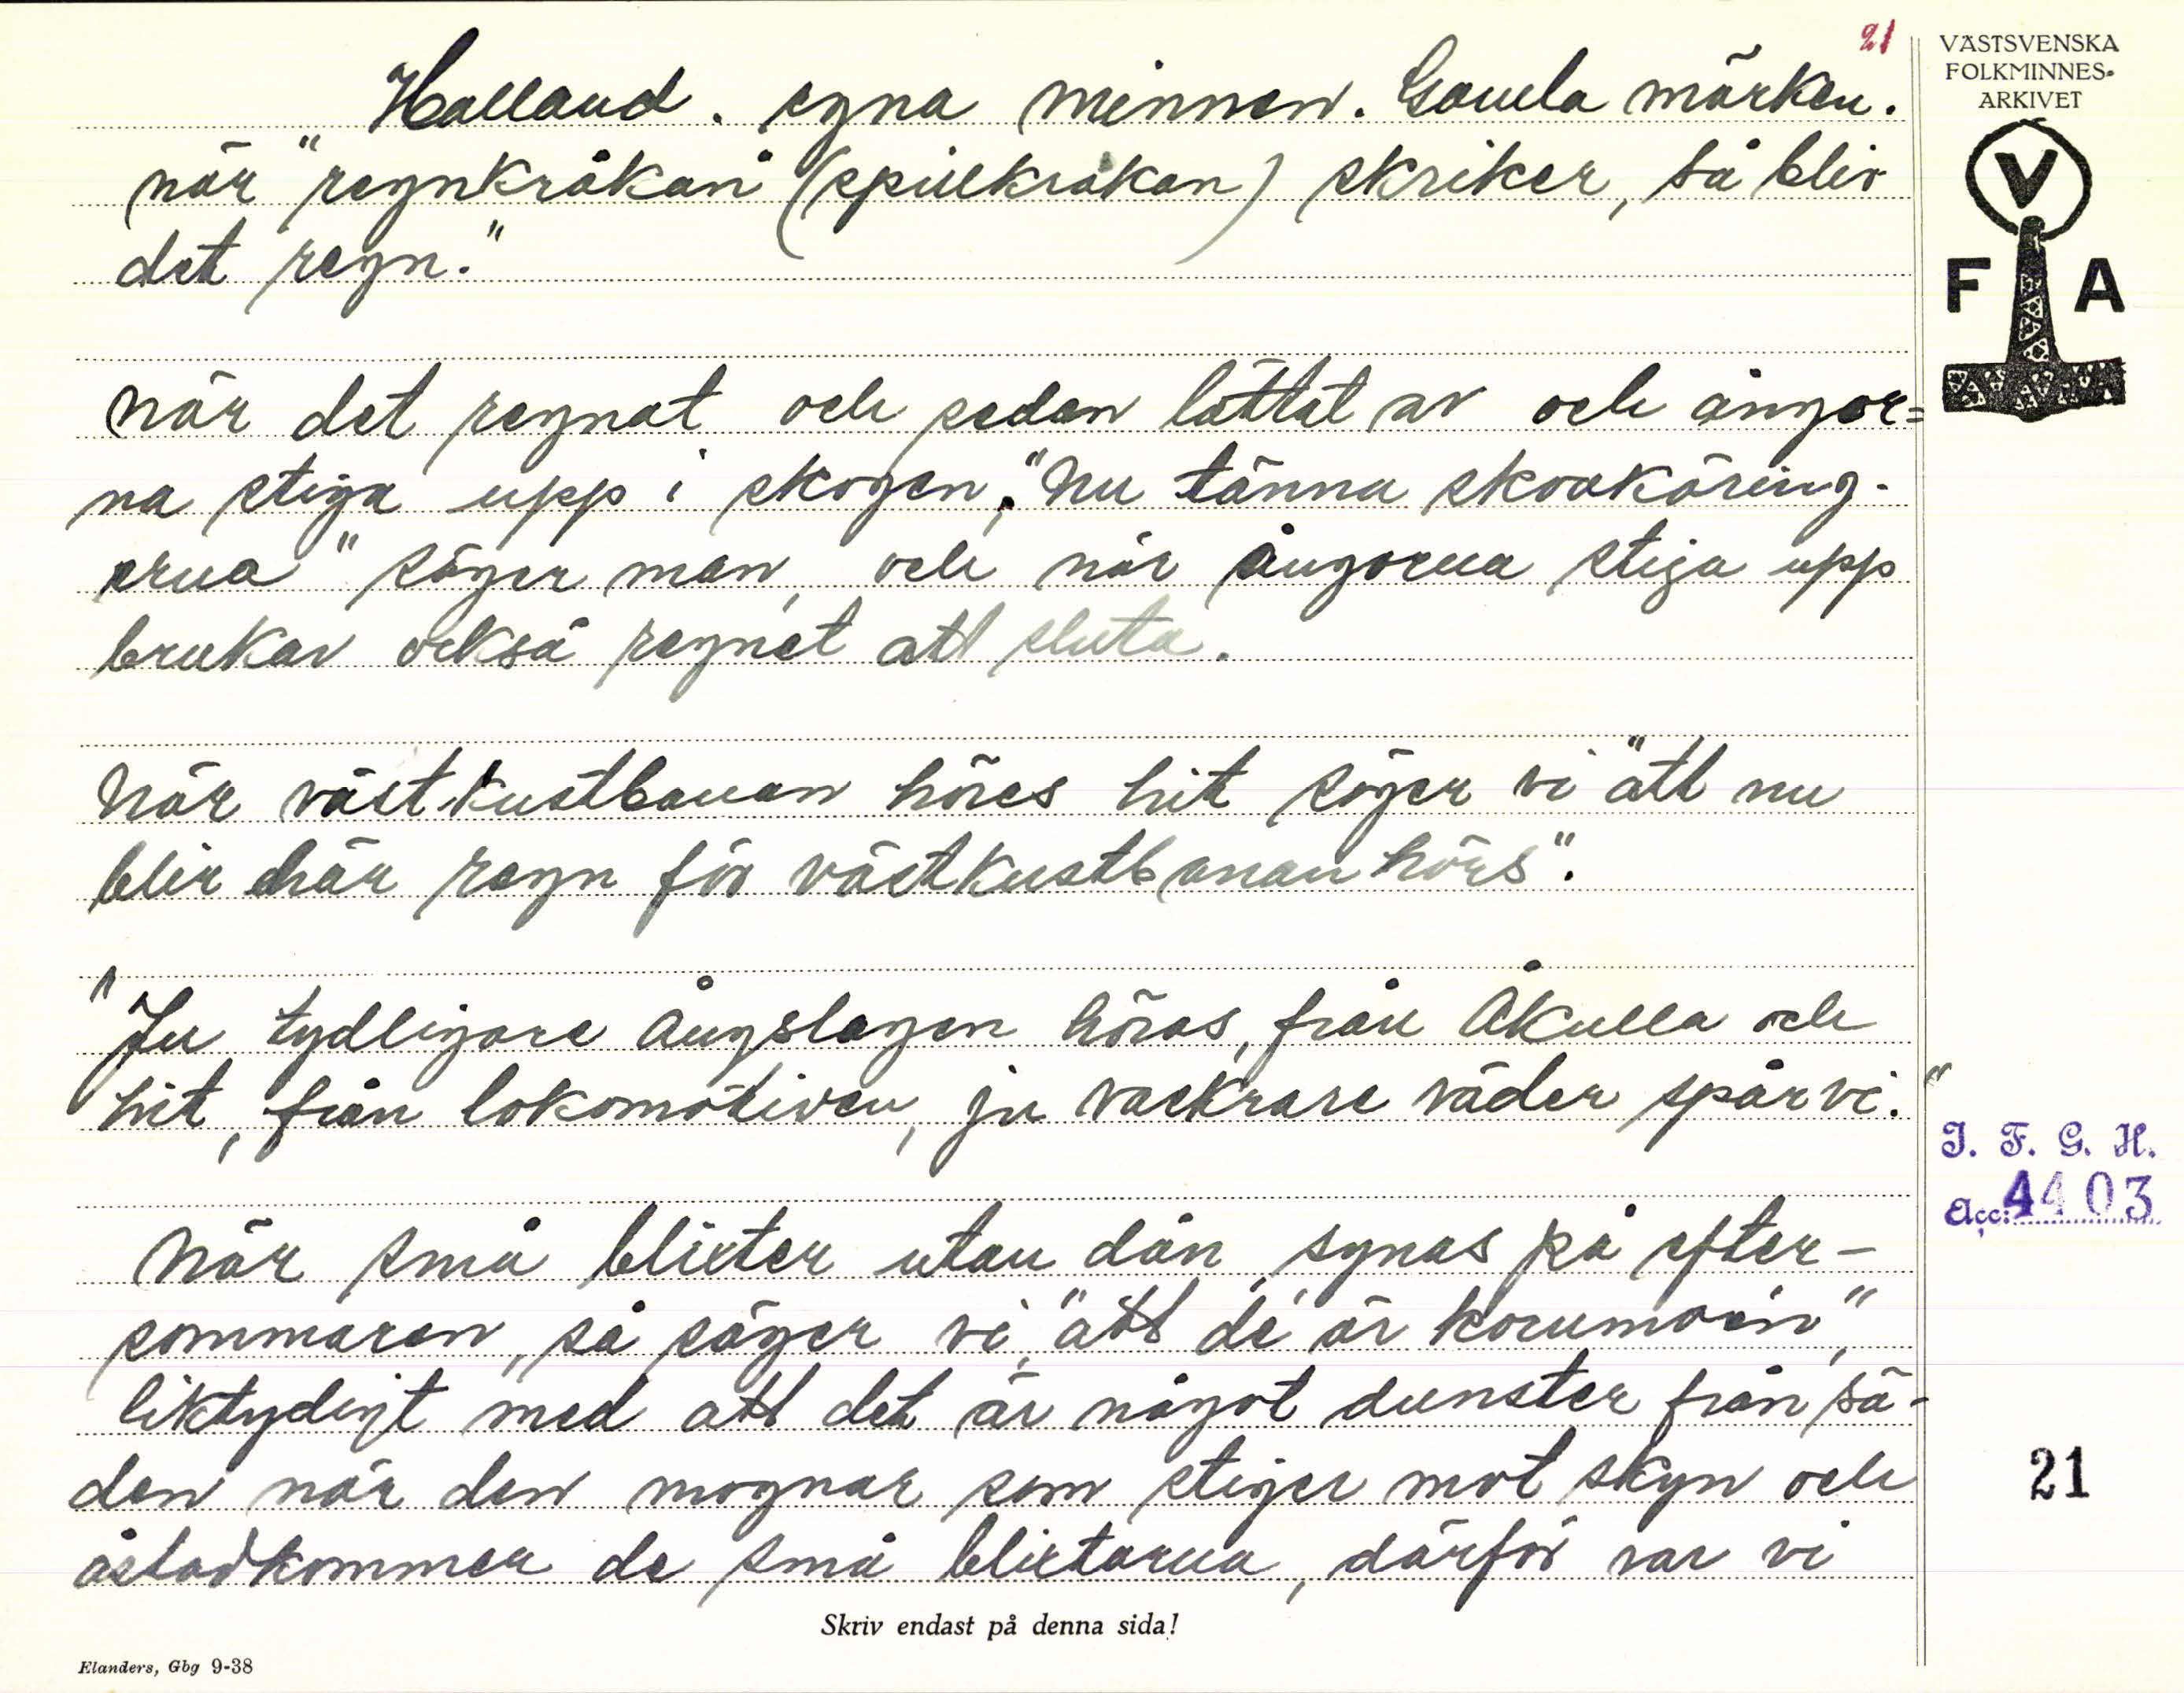 21
VÄSTSVENSKA
FOLKMINNES-
ARKIVET
V
F A
Halland. egna minnen. Gamla märken.
när "regnkråkan" (spillkråkan) skriker, så blir
det regn."
När det regnat och sedan lättat av och ångor=
na stiga upp i skogen, "Nu tänna skoakäring-
arna" säger man, och när ångorna stiga upp
brukar också regnet att sluta.
När västkustbanan höres hit säger vi "att nu
blir här regn för västkustbanan hörs".
"Ju tydligare ångslagen höras, från Åkulla och
hit, från lokomotiven, ju vackrare väder spår vi."
När små blixter utan dån, synas på efter-
sommaren, så säger vi, "att de' är kornmoen",
liktydigt med att det är något dunster från sä-
den när den mognar som stiger mot skyn och
åstadkommer de små blixtarna, därför var vi
I. F. G. H.
Acc: 4403
21
Skriv endast på denna sida!
Elanders, Gbg 9-38